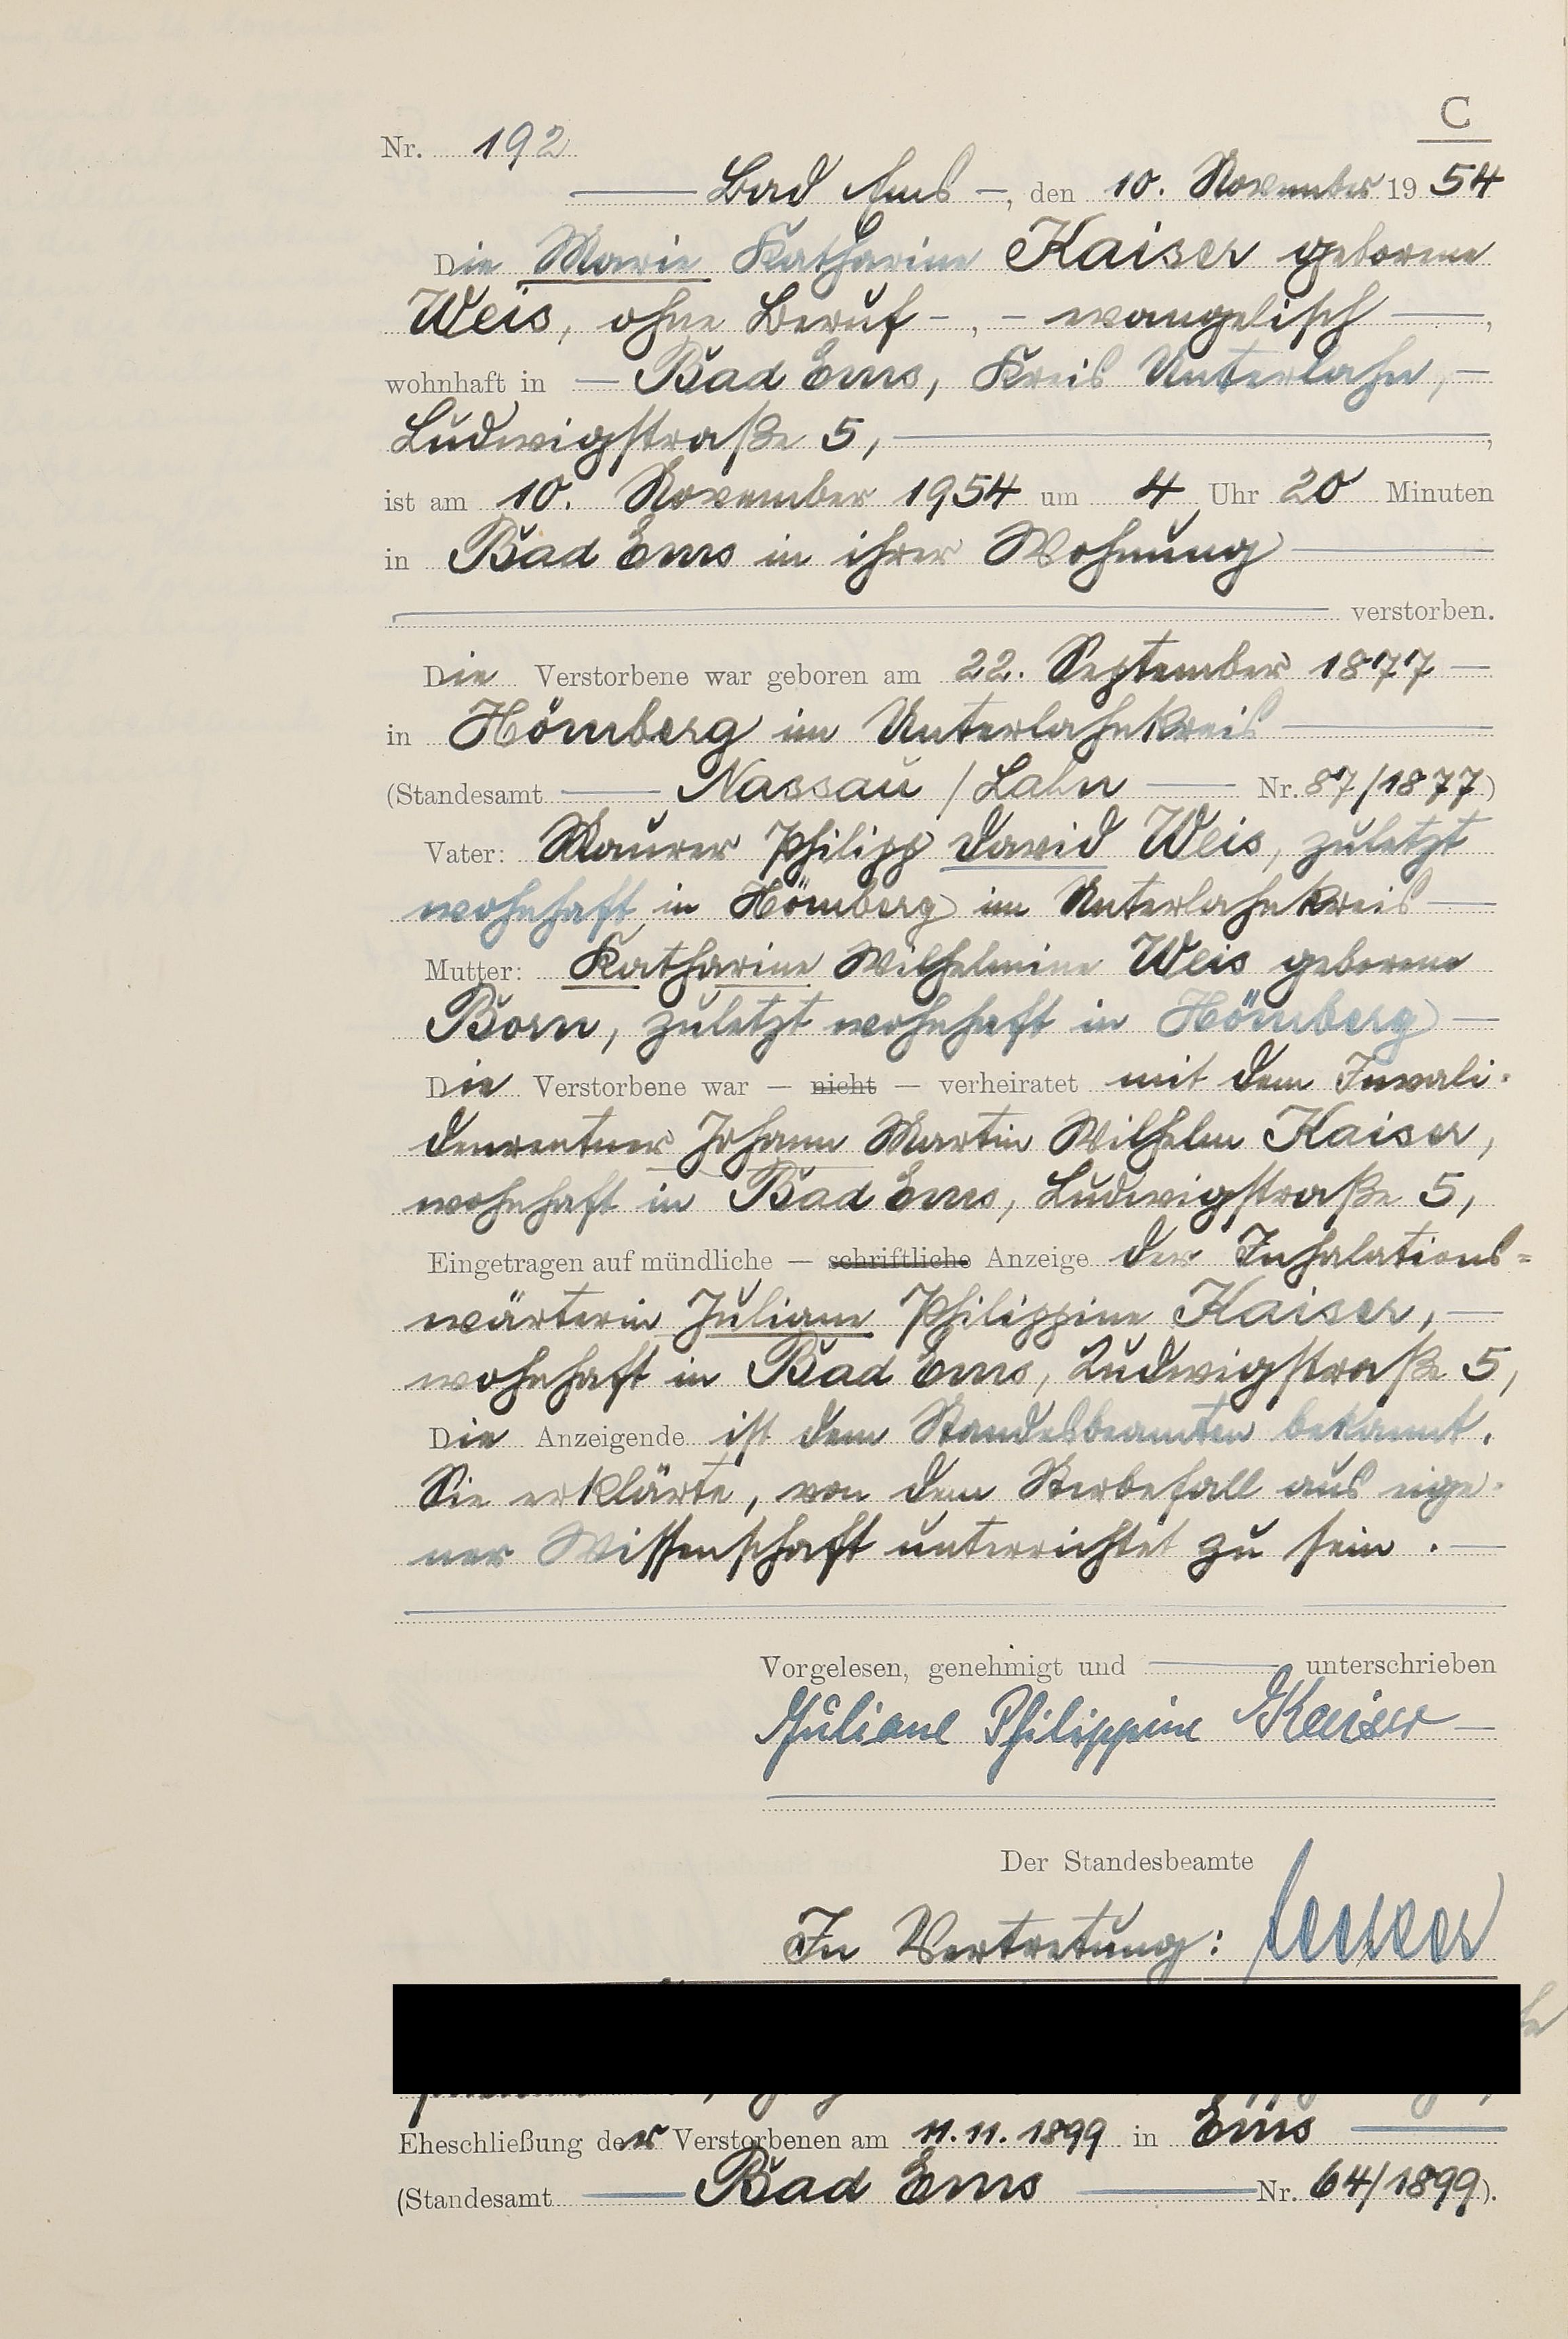 C
Nr. 192
Bad Ems –, den 10. November 1954
Die Marie Katharine Kaiser geborene
Weis, ohne Beruf –, – evangelisch —,
wohnhaft in — Bad Ems, Kreis Unterlahn, –
Ludwigstraße 5, —,
ist am 10. November 1954 um 4 Uhr 20 Minuten
in Bad Ems in ihrer Wohnung —
verstorben.
Die Verstorbene war geboren am 22. September 1877 —
in Hömberg im Unterlahnkreis —
(Standesamt — Nassau / Lahn — Nr. 87/1877)
Vater: Maurer Philipp David Weis, zuletzt
wohnhaft in Hömberg im Unterlahnkreis —
Mutter: Katharine Wilhelmine Weis geborene
Born, zuletzt wohnhaft in Hömberg —
Die Verstorbene war — nicht — verheiratet mit dem Invali-
denrentner Johann Martin Wilhelm Kaiser,
wohnhaft in Bad Ems, Ludwigstraße 5,
Eingetragen auf mündliche — schriftliche Anzeige der Inhalations=
wärterin Juliane Philippine Kaiser, —
wohnhaft in Bad Ems, Ludwigstraße 5,
Die Anzeigende ist dem Standesbeamten bekannt.
Sie erklärte, von dem Sterbefall aus eige-
ner Wissenschaft unterrichtet zu sein. —
Vorgelesen, genehmigt und — unterschrieben
Juliane Philippine Kaiser —
Der Standesbeamte
In Vertretung:
Eheschließung der Verstorbenen am 11.11.1899 in Ems —
(Standesamt — Bad Ems — Nr. 64/1899).